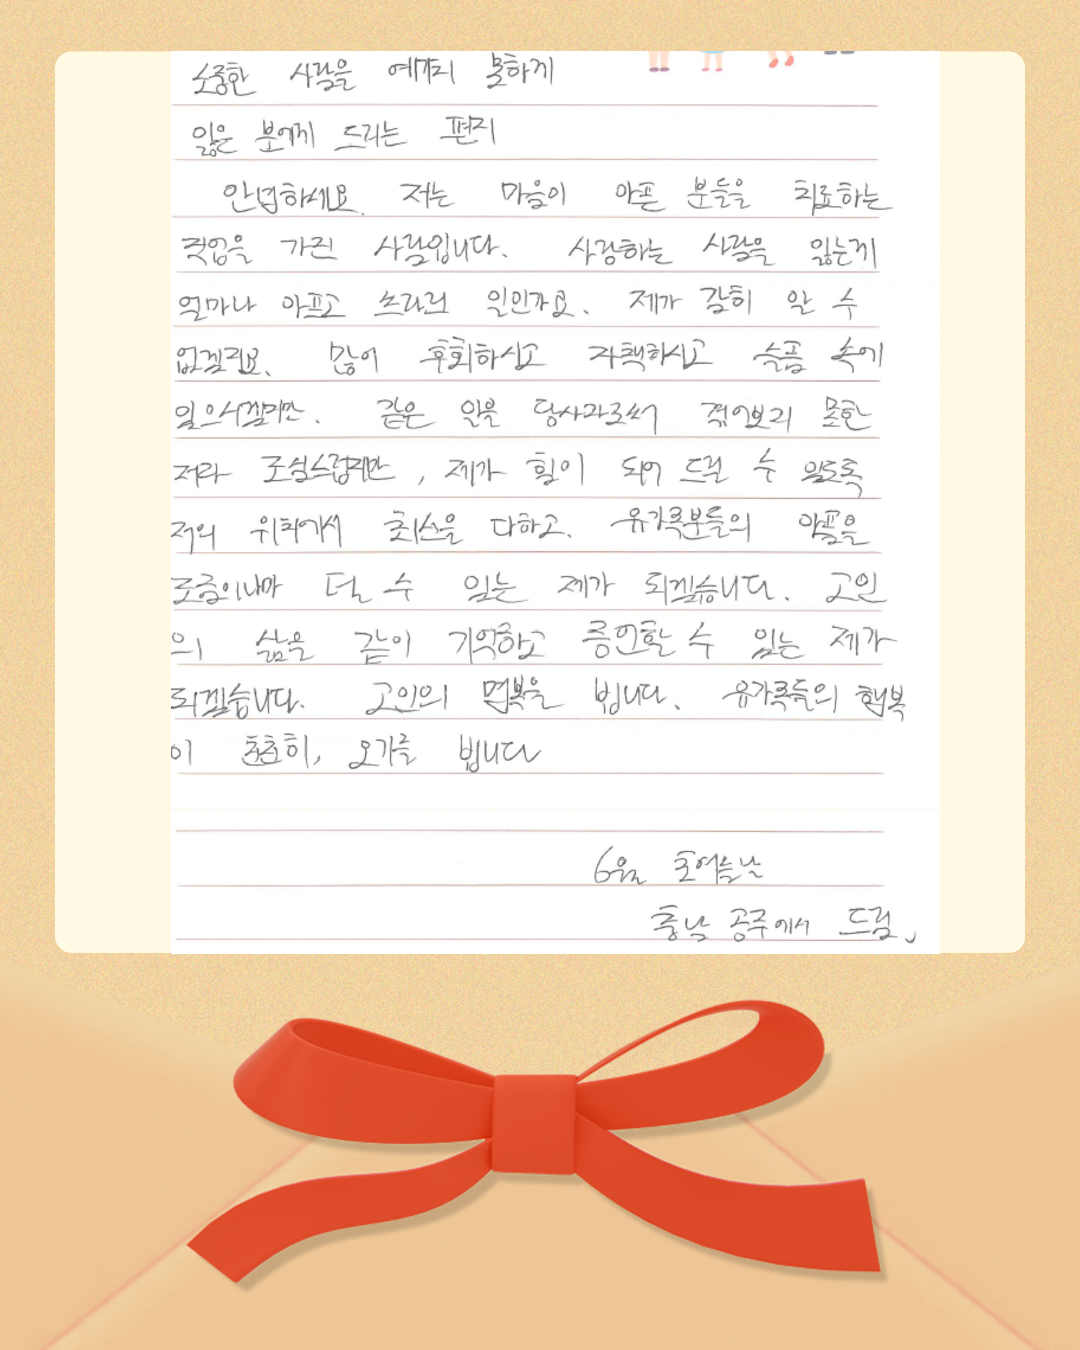 소중한 사람을 예기치 못하게
잃은 분에게 드리는 편지
안녕하세요. 저는 마음이 아픈 분들을 치료하는
직업을 가진 사람입니다. 사랑하는 사람을 잃는게
얼마나 아프고 쓰라린 일인가요. 제가 감히 알 수
없겠지요. 많이 후회하시고 자책하시고 슬픔 속에
있으시겠지만. 같은 일을 당사자로써 겪어보지 못한
저라 조심스럽지만, 제가 힘이 되어 드릴 수 있도록
저의 위치에서 최선을 다하고. 유가족분들의 아픔을
조금이나마 덜 수 있는 제가 되겠습니다. 고인
의 삶을 같이 기억하고 증언할 수 있는 제가
되겠습니다. 고인의 명복을 빕니다. 유가족들의 행복
이 촘촘히, 오가를 빕니다
6월 초여름날
충남 공주에서 드림.